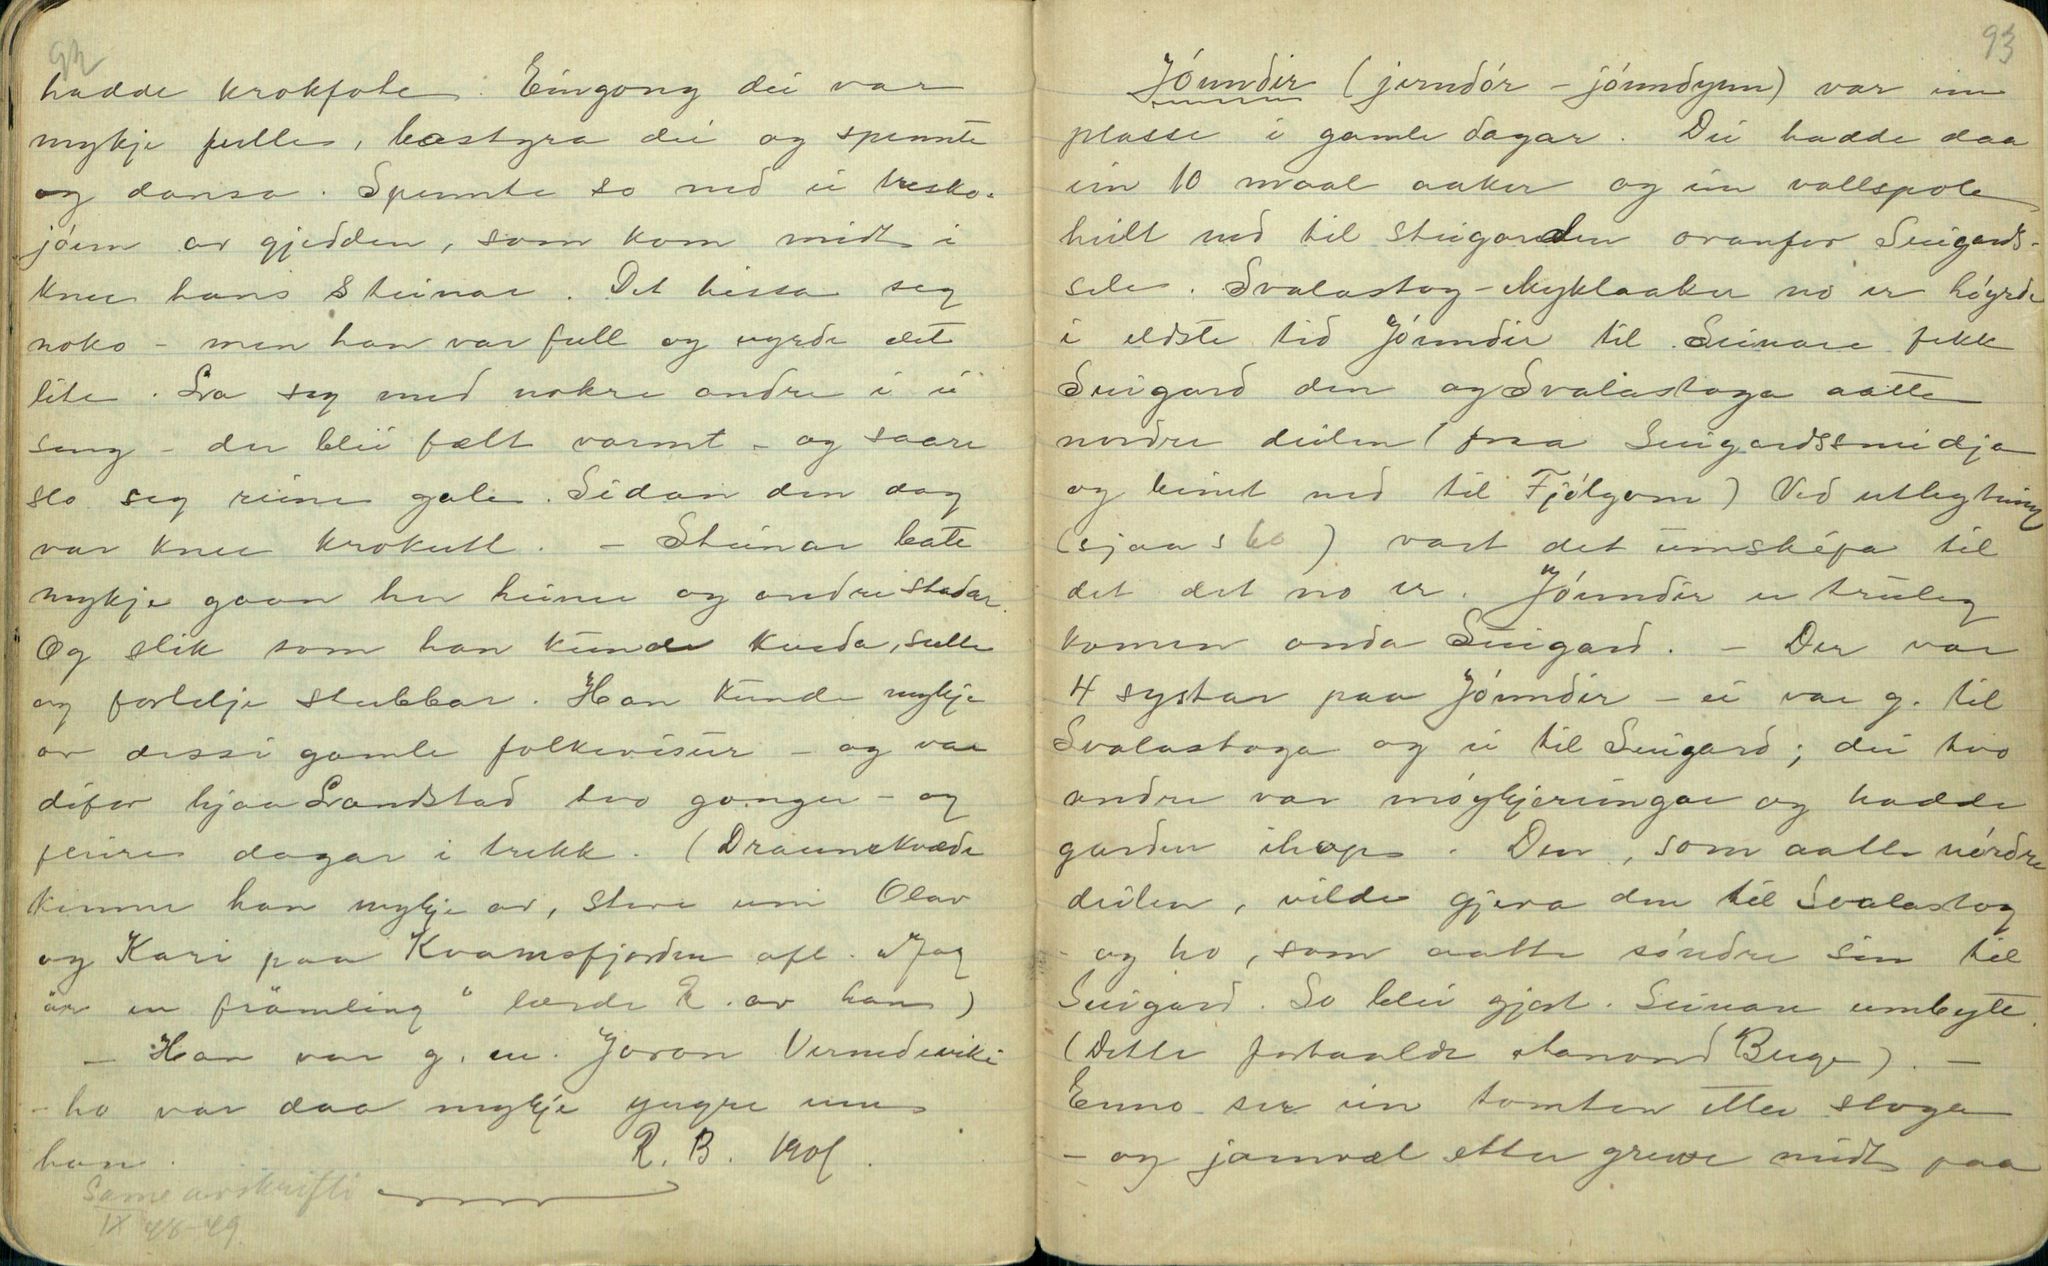 92
hadde krokfote. Eingong dei var
mykje fulle, bastyra dei og spennte
og dansa. Spennte so ned ei tresko-
jónn av gjedden, som kom midt i
knee hans Steinar. Det hissa seg
noko - men han var full og vyrde det
lite. La seg med nokre andre i ei
seng - der blei fælt varmt - og saare
slo seg reine gale. Sidan den dag
var knee krokutt. - Steinar bate
mykje gaan her heime og andre stadar.
Og slik som han kunde kveda, sulle
og fortelje stubbar. Han kunde mykje
av dessi gamle folkevisur - og var
difor hjaa Landstad two gonger - og
feire dagar i trekk. (Draumekvæde
kunne han mykje av, steve um Olav
og Kari paa Kvamsfjorden ofl. "Jag
är en främling" lærde R. av han)
- Han var g. m. Joron Vermedeviki
- ho var daa mykje yngre enn
han.
R. B. 1901.
Same avskrifti
IX 48-49
93
Jónndir (jerndór - jónndynn) var ein
plasse i gamle dagar. Dei hadde daa
ein 10 maal aaker og ein vollspole
heilt ned til steigarden ovanfor Seigards-
sele. Svalastog-Myklaaker no er høyrde
i eldste tid Jónndir til. Seinare fekk
Seigard den og Svalastoga aatte
nordre deilen (fraa Seigardssmidja
og beint ned til Fjølgom) Ved utlegtning
(sjaa s 60) vart det umsképa til
det det no er. Jónndir er truleg
komen onda Seigard. - Der var
4 systar paa Jónndir - ei var g. til
Svalastoga og ei til Seigard; dei two
andre var møykjeringar og hadde
garden ihop. Den, som aatte nórdre
deilen, vilde gjeva den til Svalastog
- og ho, som aatte sóndre sin til
Seigard. So blei gjort. Seinare umbytt.
(Dette fortaalde Hanond Buge). -
Enno ser ein tomten etter stoga
- og jamvæl etter greive midt paa